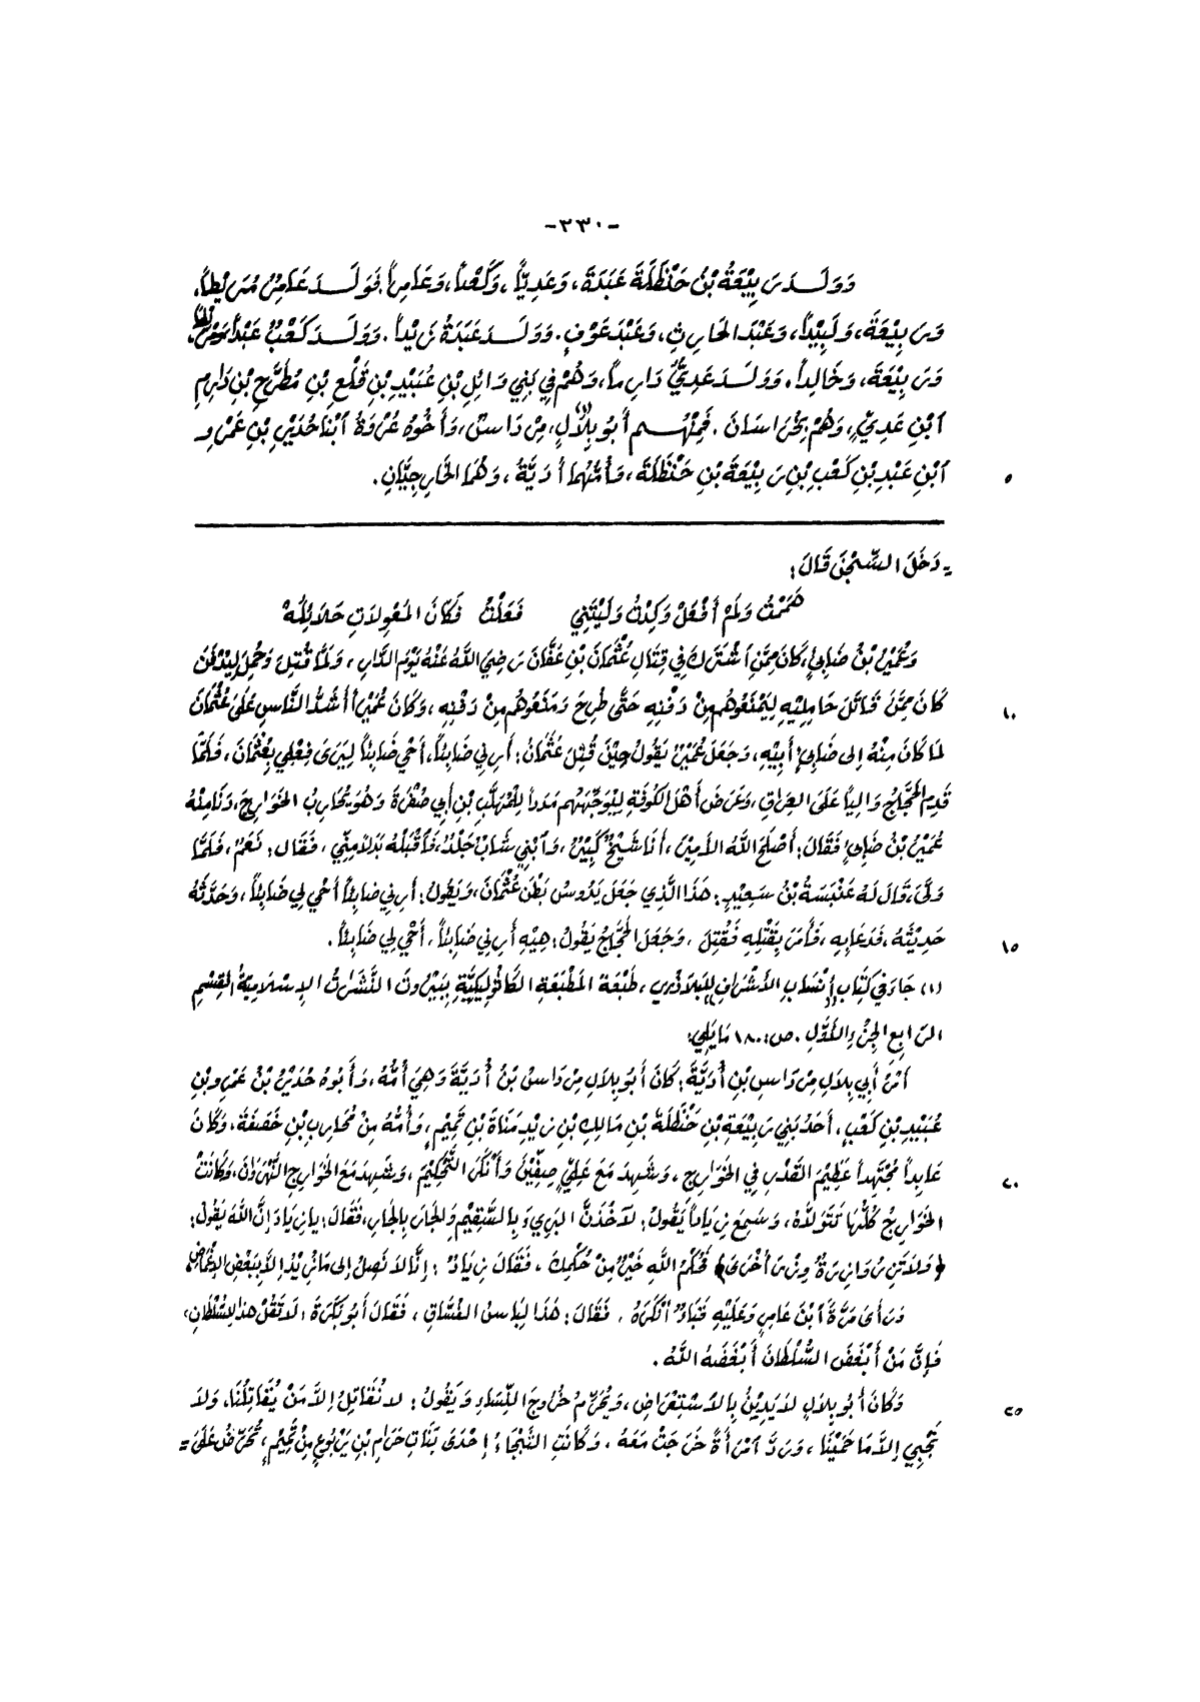 -٣٣٠-
وَوَلَدَ رَبِيْعَةُ بْنُ حَنْظَلَةَ عَبَدَةَ، وَعَدِيّاً، وَكَعْباً، وَعَامِراً. فَوَلَدَ عَامِرٌ مُرَيْطاً،
وَرَبِيْعَةَ، وَلَبِيْداً، وَعَبْدَ الحَارِثِ، وَعَبْدَ عَوْفٍ. وَوَلَدَ عَبَدَةُ زَيْداً. وَوَلَدَ كَعْبٌ عَبْداً،
وَرَبِيْعَةَ، وَخَالِداً. وَوَلَدَ عَدِيٌّ دَارِماً، وَهُمْ فِي بَنِي وَائِلِ بْنِ عُبَيْدِ بْنِ قَلْعِ بْنِ مُطَرَّحِ بْنِ دَارِمِ
ٱبْنِ عَدِيٍّ، وَهُمْ بِخُرَاسَانَ. فَمِنْهُم أَبُو بِلاَلٍ(١)، مِرْدَاسٌ، وَأَخُوهُ عُرْوَةُ ٱبْنَا حُدَيْرِ بْنِ عَمْرِو
ٱبْنِ عَبْدِ بْنِ كَعْبِ بْنِ رَبِيْعَةَ بْنِ حَنْظَلَةَ، وَأُمُّهُمَا أُدَيَّةُ، وَهُمَا الخَارِجِيَّانِ.
٥
= دَخَلَ السِّجْنَ قَالَ:
هَمَمْتُ وَلَمْ أَفْعَلْ وَكِدْتُ وَلَيْتَنِي فَعَلْتُ فَكَانَ المُعْوِلَاتِ حَلَائِلُهْ
وَعُمَيْرُ بْنُ ضَابِئٍ، كَانَ مِمَّنِ ٱشْتَرَكَ فِي قِتَالِ عُثْمَانَ بْنِ عَفَّانَ رَضِيَ اللَّهُ عَنْهُ يَوْمَ الدَّارِ، وَلَمَّا قُتِلَ وَحُمِلَ لِيُدْفَنَ
كَانَ مِمَّنَ قَاتَلَ حَامِلِيْهِ لِيَمْنَعُوهُم مِنْ دَفْنِهِ حَتَّى طُرِحَ وَمَنَعُوهُم مِنْ دَفْنِهِ، وَكَانَ عُمَيْرٌ أَشَدَّ النَّاسِ عَلَى عُثْمَانَ
١٠
لمَا كَانَ مِنْهُ إلى ضَابِئٍ أَبِيْهِ، وَجَعَلَ عُمَيْرٌ يَقُولُ حِيْنَ قُتِلَ عُثْمَانُ: أَرِنِي ضَابِئاً، أَحْيِ ضَابِئاً لِيَرَى فِعْلِي بِعُثْمَانَ، فَلَمَّا
قَدِمَ الحَجَّاجُ وَالِياً عَلَى العِرَاقِ، وَعَرَضَ أَهْلَ الكُوفَةِ لِيُوَجِّهَهُم مَدَداً لِلْمُهَلَّبِ بْنِ أَبِي صُفْرَةَ وَهُوَ يُحَارِبُ الخَوَارِجَ، دَنَا مِنْهُ
عُمَيْرُ بْنُ ضَابِئٍ فَقَالَ: أَصْلَحَ اللَّهُ الأَمِيْرَ، أَنَا شَيْخٌ كَبِيْرٌ، وَٱبْنِي شَابٌّ جَلْدٌ، فَٱقْبَلْهُ بَدَلاً مِنِّي، فَقَال: نَعَمْ، فَلَمَّا
وَلَّى، قَالَ لَهُ عَنْبَسَةُ بْنُ سَعِيْدٍ: هَذَا الَّذِي جَعَلَ يَدُوسُ بَطْنَ عُثْمَانَ، وَيَقُولُ: أَرِنِي ضَابِئاً أَحْيِ لِي ضَابِئاً، وَحَدَّثَهُ
حَدِيْثَهُ، فَدَعَا بِهِ، فَأَمَرَ بِقَتْلِهِ فَقُتِلَ، وَجَعَلَ الحَجَّاجُ يَقُولُ: هِيْهِ أَرِنِي ضَابِئاً، أَحْيِ لِي ضَابِئاً.
١٥
(١) جَاءَ فِي كِتَابِ إِنْسَابِ الأَشْرَافِ لِلبَلَاذُرِي، طَبْعَة المَطْبَعَةِ الكَاثُولِيكِيَّةِ بِبَيْرُوتَ النَّشَرَاتُ الإِسْلَامِيَّةُ القِسْمِ
الرَّابِعِ الجُزْءِ الأَوَّلِ. ص: ١٨٠ مَا يَلِي:
أَمْرُ أَبِي بِلَالٍ مِرْدَاسِ بْنِ أُدَيَّةَ: كَانَ أَبُو بِلَالٍ مِرْدَاسُ بْنُ أُدَيَّةَ وَهِيَ أُمُّهُ، وَأَبُوهُ حُدَيْرُ بْنُ عَمْرِو بْنِ
عُبَيْدِ بْنِ كَعْبٍ، أَحَدُ بَنِي رَبِيْعَةَ بْنِ حَنْظَلَةَ بْنِ مَالِكِ بْنِ زَيْدِ مَنَاةَ بْنِ تَمِيْمٍ، وَأُمُّهُ مِنْ مُحَارِبِ بْنِ خَصَفَةَ، وَكَانَ
عَابِداً مُجْتَهِداً عَظِيْمَ القَدْرِ فِي الخَوَارِجِ، وَشَهِدَ مَعَ عَلِيٍّ صِفِّيْنَ وَأَنْكَرَ التَّحْكِيْمَ، وَشَهِدَ مَعَ الخَوَارِجِ النَّهْرَوَانَ، وَكَانَتْ
٢٠
الخَوَارِجُ كُلُّهَا تَتَوَلَّاهُ، وَسَمِعَ زِيَاداً يَقُولُ: لآخُذَنَّ البَرِيءَ بِالسَّقِيْمِ وَالجَارَ بِالجَارِ، فَقَالَ: يَا زِيَادُ إنَّ اللَّهَ يَقُولُ:
﴿وَلاَ تَزِرُ وَازِرَةٌ وِزْرَ أُخْرَى﴾ فَحُكْمُ اللَّهِ خَيْرٌ مِنْ حُكْمِكَ، فَقَالَ زِيَادٌ: إنَّا لاَ نَصِلُ إلى مَا نُرِيْدُ إلاَّ بِبَعْضِ الإِغْمَاضِ
وَرَأَى مَرَّةً ٱبْنَ عَامِرٍ وَعَلَيْهِ قَبَاءٌ أنْكَرَهُ، فَقَالَ: هَذَا لِبَاسُ الفُسَّاقِ، فَقَالَ أَبُو بَكْرَةَ: لاَ تَقُلْ هذَا لِلسُّلْطَانِ،
فَإِنَّ مَنْ أَبْغَضَ السُّلْطَانَ أَبْغَضَهُ اللَّهُ.
وَكَانَ أَبُو بِلَالٍ لاَ يَدِيْنُ بِالاسْتِعْرَاضِ، وَيُحَرِّمُ خُرُوجَ النِّسَاءِ وَيَقُولُ: لا نُقَاتِلُ إلاَّ مَنْ يُقَاتِلُنَا، وَلاَ
٢٥
نَجْبِي إلاَّ مَا حَمَيْنَا، وَرَدَّ ٱمْرَأَةً خَرَجَتْ مَعَهُ، وَكَانَتِ الثَّبْجَاءُ إحْدَى بَنَاتِ حَرَامِ بْنِ يَرْبُوعٍ مِنْ تَمِيْمٍ، تُحَرِّضُ عَلَى =